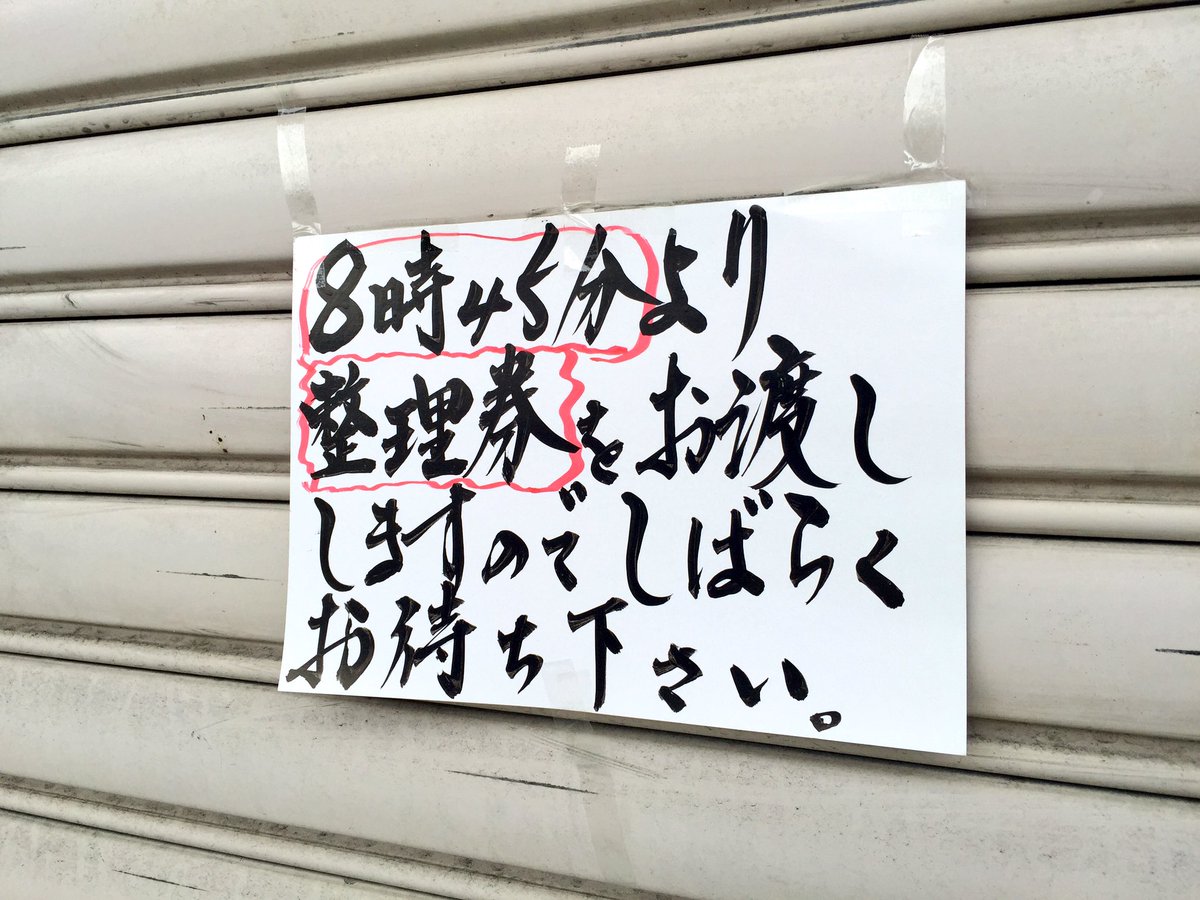 8時45分より
整理券をお渡し
しますのでしばらく
お待ち下さい。